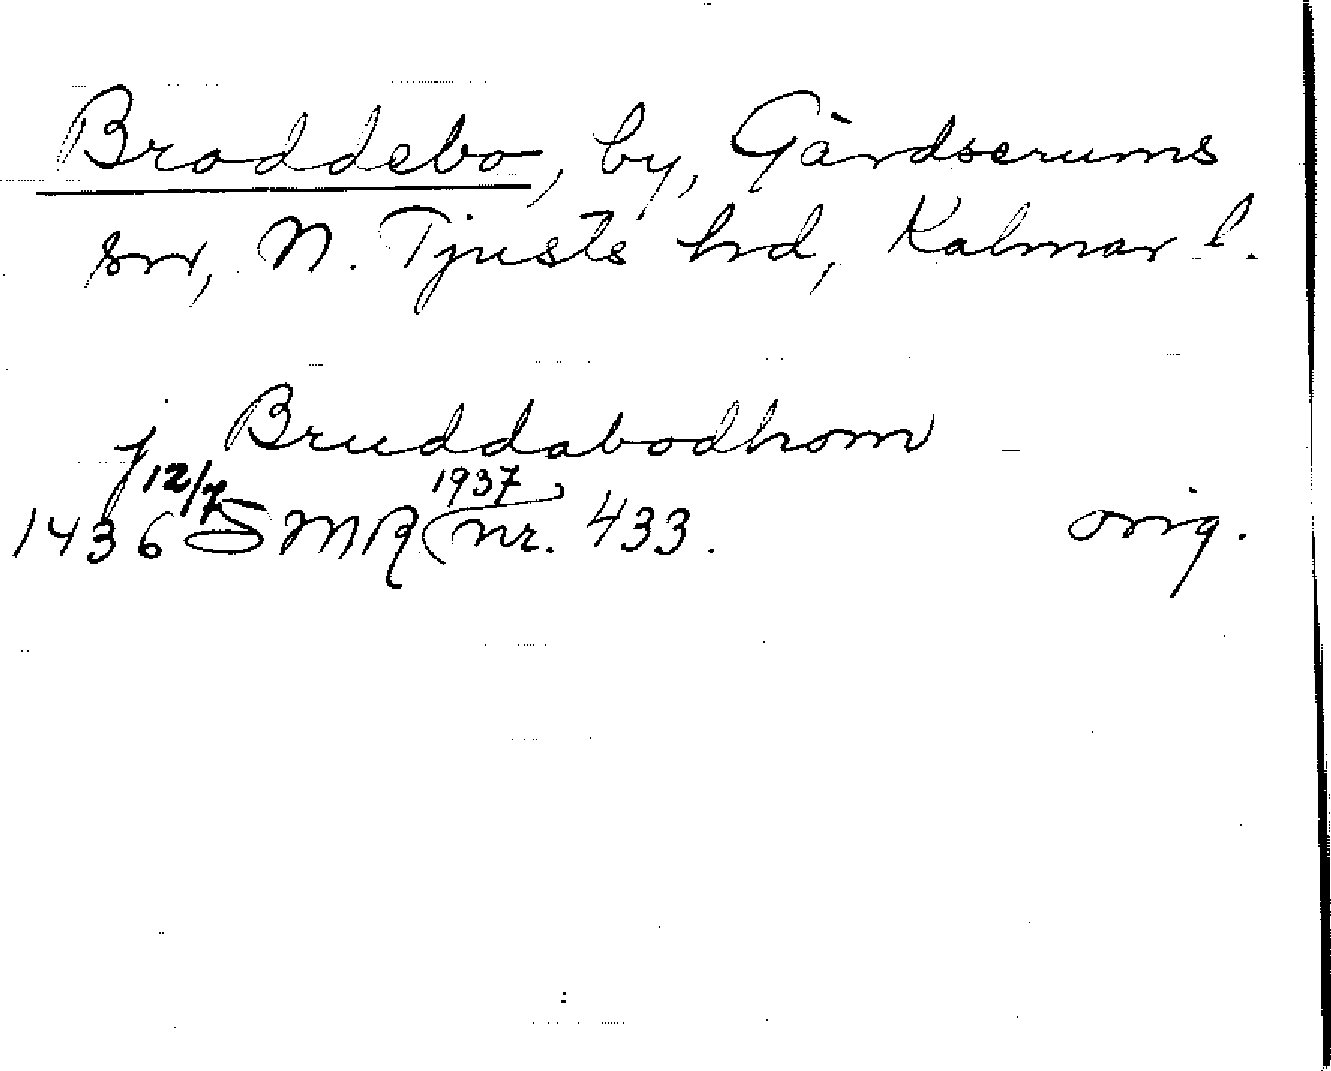 Broddebo, by, Gärdserums
sn, N. Tjusts hd, Kalmar l.
j Bruddabodhom
1436 12/7 SMR (1937) nr. 433. orig.